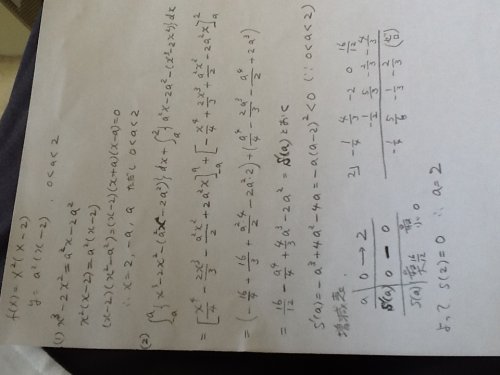 f(x) = x²(x-2)
y = a²(x-2)   0<a<2
(1) x³-2x² = a²x-2a²
x²(x-2) = a²(x-2)
(x-2)(x²-a²) = (x-2)(x+a)(x-a) = 0
∴ x = 2, -a, a ただし 0<a<2
(2) ∫₋ₐᵃ{x³-2x²-(a²x-2a²)}dx + ∫ₐ²{a²x-2a²-(x³-2x²)}dx
= [x⁴/4 - 2x³/3 - a²x²/2 + 2a²x]₋ₐᵃ + [-x⁴/4 + 2x³/3 + a²x²/2 - 2a²x]ₐ²
= (-16/4 + 16/3 + a²4/2 - 2a²2) + (a⁴/4 - 2a³/3 - a⁴/2 + 2a³)
= 16/12 - a⁴/4 + 4/3 a³ - 2a² = S(a) とおく
S'(a) = -a³+4a²-4a = -a(a-2)² < 0 (∵ 0<a<2)
増減表
a | 0 → 2
S'(a) | 0 - 0
S(a) | 最大 最小 0
よって S(2) = 0 ∴ a = 2
2| -1/4 4/3 -2 0 16/12